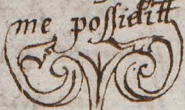 me possiditt